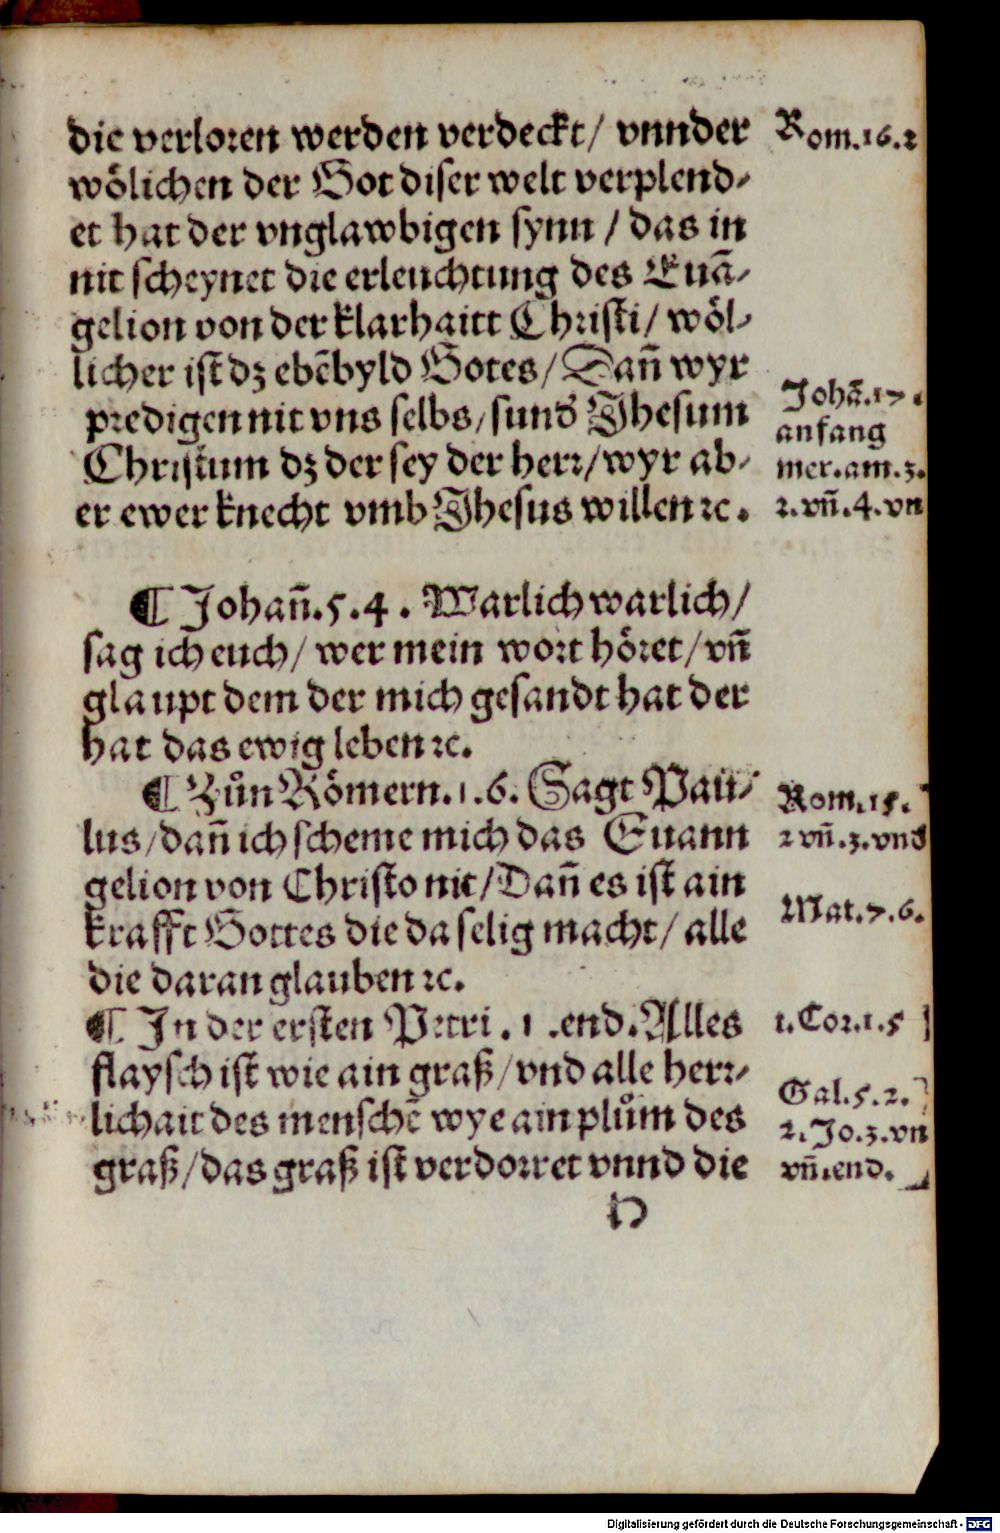 die verloren werden verdeckt/ vnnder
wölichen der Got diser welt verplend⸗
et hat der vnglawbigen synn / das in
nit scheynet die erleuchtung des Euã⸗
gelion von der klarhaitt Christi/ wöl⸗
licher ist dz ebẽbyld Gotes/ Dañ wyr
predigen nit vns selbs/ sund̕ Jhesum
Christum dz der sey der herr/ wyr ab⸗
er ewer knecht vmb Jhesus willen ꝛc.
Rom.16.2
Johã.17.
anfang
mer.am.3.
2.vñ.4.vn
¶ Johañ.5.4. Warlich warlich/
sag ich euch/ wer mein wort höret/ vñ
glaupt dem der mich gesandt hat der
hat das ewig leben ꝛc.
¶ Zůn Römern.1.6. Sagt Pau⸗
lus/ dañ ich scheme mich das Euann
gelion von Christo nit/ Dañ es ist ain
krafft Gottes die da selig macht/ alle
die daran glauben ꝛc.
Rom.15.
2 vñ.3.vnd
Mat.7.6.
¶ In der ersten Petri .1 .end. Alles
flaysch ist wie ain graß/ vnd alle herr⸗
lichait des menschẽ wye ain plům des
graß/ das graß ist verdorret vnnd die
1.Cor.1.5
Gal.5.2.
2.Jo.3.vn
vñ.end.
D
Digitalisierung gefördert durch die Deutsche Forschungsgemeinschaft - DFG